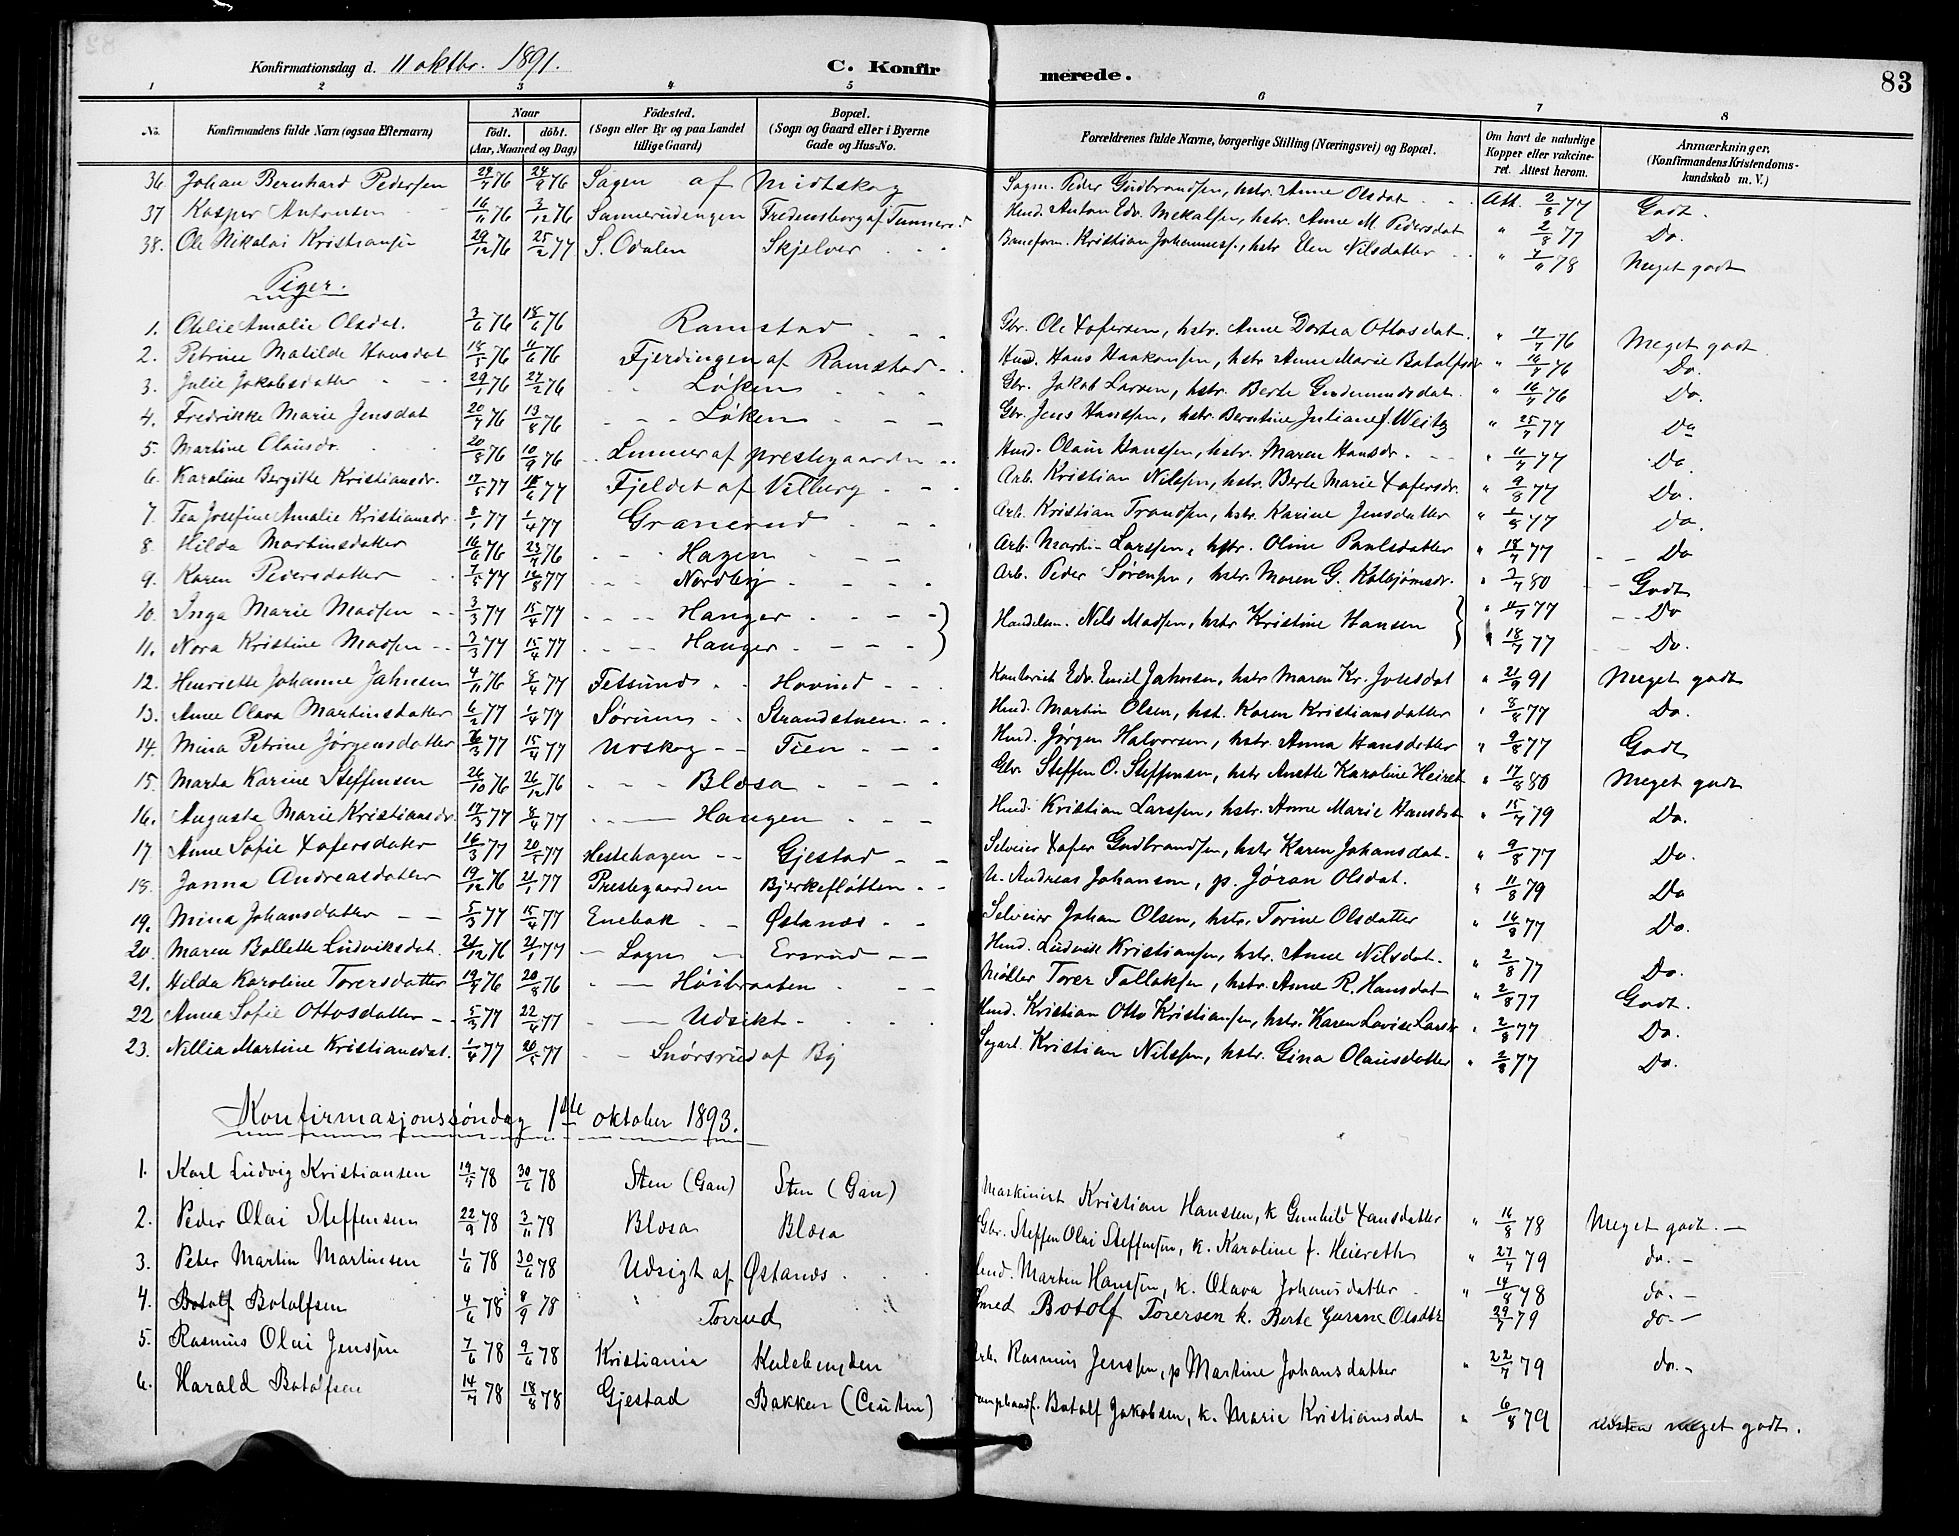 Konfirmationsdag d. 11 oktbr. 1891. C. Konfirmerede. 83
1 2 3 4 5 6 7 8
No. Konfirmandens fulde Navn (ogsaa Efternavn) Naar født. døbt. (Aar, Maaned og Dag) Fødested. (Sogn eller By og paa Landet tillige Gaard) Bopæl. (Sogn og Gaard eller i Byerne Gade og Hus-No. Forældrenes fulde Navne, borgerlige Stilling (Næringsvei) og Bopæl. Om havt de naturlige Kopper eller vakcineret. Attest herom. Anmærkninger. (Konfirmandens Kristendomskundskab m. V.)
36 Johan Bernhard Pedersen 29/7 76 24/9 76 Sagen af Midtskog Sagm. Peder Gudbrandsen, hstr. Anne Olsdat. Att. 2/8 77 Godt.
37 Kasper Antonsen 16/11 76 3/12 76 Sannerudengen Fredensborg af Hmd. Anton Edv. Mekalsen, hstr. Anne M. Pedersdat " 2/8 77 Do.
38. Ole Nikolai Kristiansen 29/12 76 25/2 77 S. Odalen Skjelver Baneform. Kristian Johanness., hstr Elen Nilsdatter " 78 Meget godt
Piger.
1. Amalie Olsdat. 3/6 76 18/6 76 Ramstad Gbr. Ole Xofersen, hstr. Anne Dortea Ottosdat. " 17/7 76 Meget godt
2. Petrine Matilde Hansdat 18/5 76 11/6 76 Fjerdingen af Ramstad Hmd. Hans Haakonsen, hstr Anne Marie Botolfsdr " 76 Do.
3. Julie Jakobsdatter 29/1 76 27/2 76 Løken Gbr. Jakob Larsen, hstr. Berte Gudmundsdat. " 76 Do.
4. Fredrikke Marie Jensdat 20/7 76 13/8 76 Løken Gbr. Jens Hanssen, hstr. Berntine Juliane f. Weitz " 25/7 77 Do
5. Martine Olausdr. 20/8 76 10/9 76 af prestegaarden Hmd. Olaus Hanssen, hstr. Maren Hansdr. " 77 Do
6. Karoline Bergitte Kristiansdr. 17/5 77 77 Fjeldet af Vilberg Arb. Kristian Nilssen, hstr. Berte Marie Xofersdr. " 9/8 77 Do.
7. Tea Josefine Amalie Kristiansdr. 8/1 77 1/4 77 Granerud Arb. Kristian Trondsen, hstr. Karine Jensdatter " 77 Do.
8. Hilda Martinsdatter 16/6 76 23/7 76 Hagen Arb. Martin Larssen, hstr. Oline Paulsdatter " 18/7 77 Do
9. Karen Pedersdatter 7/5 77 77 Nordby Arb. Peder Sørensen, hstr. Maren G. Kolbjørnsdr. " 80 Godt
10. Inga Marie Madsen 3/3 77 15/4 77 Hanger } Handelsm. Nils Madsen, hstr Kristine Hansen } " 77 Do
11. Nora Kristine Madsen 3/3 77 15/4 77 Hanger " 18/7 77 Do.
12. Henriette Johanne Jahnsen 4/11 76 8/4 77 Fetsund Hovind Edv. Emil Jahnsen, hstr Maren Kr. Jonsdat " 21/9 91 Meget godt
13. Anne Olava Martinsdatter 6/2 77 1/4 77 Sørum Strandstuen Hmd. Martin Olsen, hst. Karen Kristiansdatter " 8/8 77 Do.
14. Mina Petrine Jørgensdatter 77 15/4 77 Urskog Tien Hmd. Jørgen Halvorsen, hstr. Anna Hansdatter " 9/8 77 Godt
15. Marta Karine Steffensen 26/10 76 26/12 76 Blæsa Gbr. Steffen O. Steffensen, hstr Anette Karoline Heiret " 17/8 80 Meget godt
16. Augusta Marie Kristiansdr. 17/3 77 8/4 77 Haugen Hmd. Kristian Larssen, hstr. Anne Marie Hansdat " 15/7 79 Do.
17 Anne Sofie Xofersdatter 16/3 77 20/5 77 Hestehagen Gjestad Selveier Xofer Gudbrandsen, hstr Karen Johansdat. " 9/8 77 Do.
18. Janna Andreasdatter 19/12 76 21/1 77 Prestegaarden Bjerkefløtten U. Andreas Johansen, p. Jøran Olsdat. " 11/8 79 Do
19. Mina Johansdatter 5/3 77 15/4 77 Enebak Østanæs Selveier Johan Olsen, hstr. Torine Olsdatter " 16/8 77 Do.
20. Maren Bollette Ludviksdat. 21/12 76 21/1 77 Ersrud Hmd. Ludvik Kristiansen, hstr. Anne Nilsdat. " 2/8 77 Do.
21. Hilda Karoline Torersdatter 76 20/8 76 Høibraaten Møller Torer Tollaksen, hstr. Anne R. Hansdat " 2/8 77 Godt.
22 Anna Sofie Ottosdatter 5/3 77 22/4 77 Udsikt Hmd. Kristian Otto Kristiansen, hstr. Karen Lovise Larsdr " 2/8 77 Do.
23. Nillia Martine Kristiansdat. 1/4 77 20/5 77 Snørsrud af By Kristian Nilssen, hstr. Gina Olausdatter " 2/8 77 Do.
Konfirmasjonssøndag 1ste oktober 1893.
1. Karl Ludvig Kristiansen 78 30/6 78 Sten (Gan) Sten (Gan) Maskinist Kristian Hanssen, k Gunhild Hansdatter " 16/8 78 Meget godt.
2. Peder Olai Steffensen 22/9 78 3/11 78 Blæsa Blæsa Gbr. Steffen Olai Steffensen, k. Karoline f. Heiereth " 27/7 79 do.
3. Peter Martin Martinsen 1/6 78 30/6 78 Udsigt af Østanæs Hmd. Martin Hanssen, k. Olava Johansdatter " 14/8 78 do.
4. Botolf Botolfsen 4/6 78 8/9 78 " Torrud Smed Botolf Torersen k. Berte Olsdtr 29/7 79 do
5. Rasmus Olai Jenssen 7/6 78 9/6 78 Kristiania Kulebunden Arb. Rasmus Jenssen, p Martine Johansdatter " 22/7 79 do.
6. Harald Botolfsen 14/7 78 18/8 78 Gjestad Bakken (Centen) Botolf Jakobsen, k. Marie Kristiansdat " 6/8 79 meget godt.